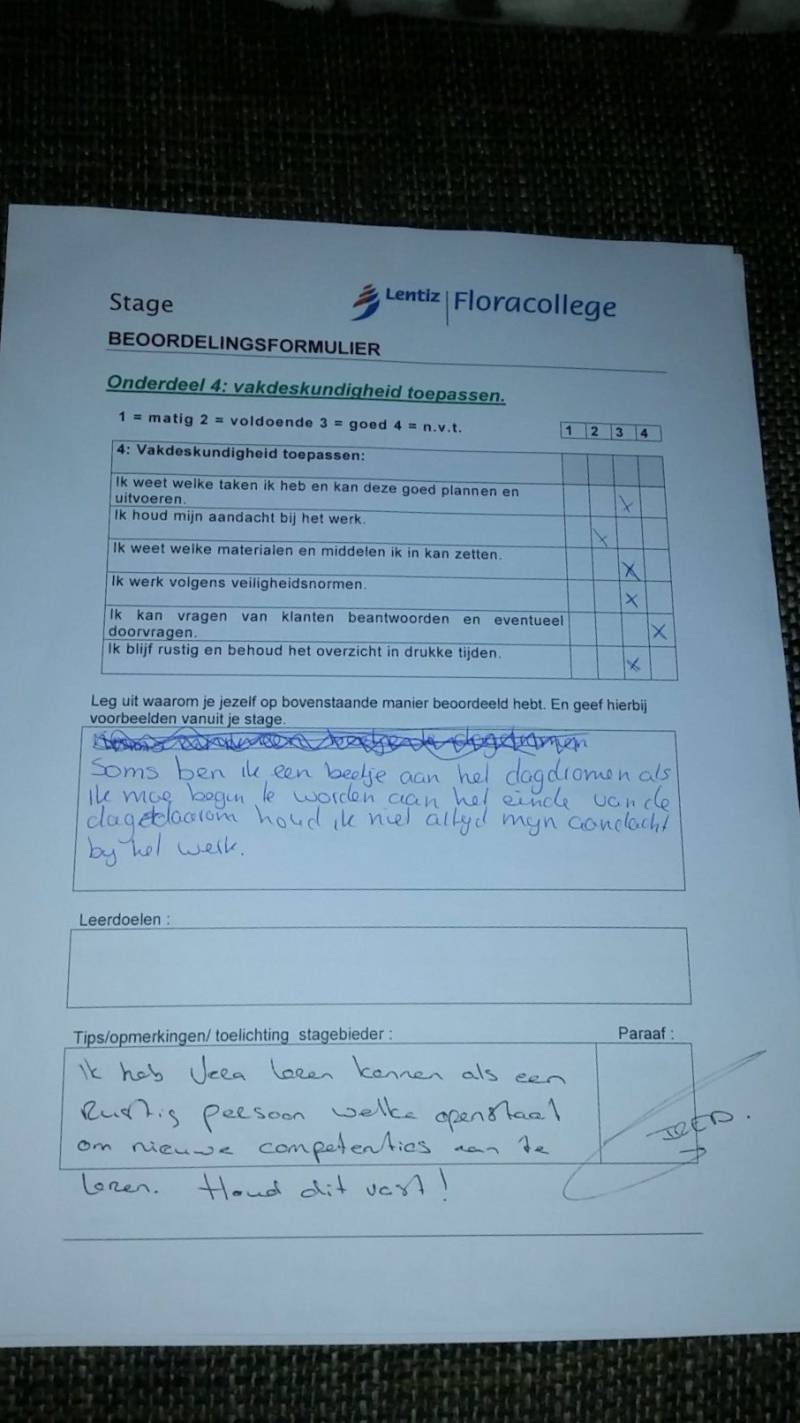 Stage
Lentiz | Floracollege
BEOORDELINGSFORMULIER
Onderdeel 4: vakdeskundigheid toepassen.
1 = matig 2 = voldoende 3 = goed 4 = n.v.t.
1 2 3 4
4: Vakdeskundigheid toepassen:
Ik weet welke taken ik heb en kan deze goed plannen en
uitvoeren. X
Ik houd mijn aandacht bij het werk. X
Ik weet welke materialen en middelen ik in kan zetten. X
Ik werk volgens veiligheidsnormen. X
Ik kan vragen van klanten beantwoorden en eventueel
doorvragen. X
Ik blijf rustig en behoud het overzicht in drukke tijden. X
Leg uit waarom je jezelf op bovenstaande manier beoordeeld hebt. En geef hierbij
voorbeelden vanuit je stage.
Soms ben ik een beetje aan het dagdromen als
ik moe begin te worden aan het einde van de
dag daarom houd ik niet altyd myn aandacht
by het werk.
Leerdoelen :
Tips/opmerkingen/ toelichting stagebieder :
Paraaf :
Ik heb Vera leren kennen als een
Rustig persoon welke openstaat
om nieuwe competenties aan te
leren. Houd dit vast!